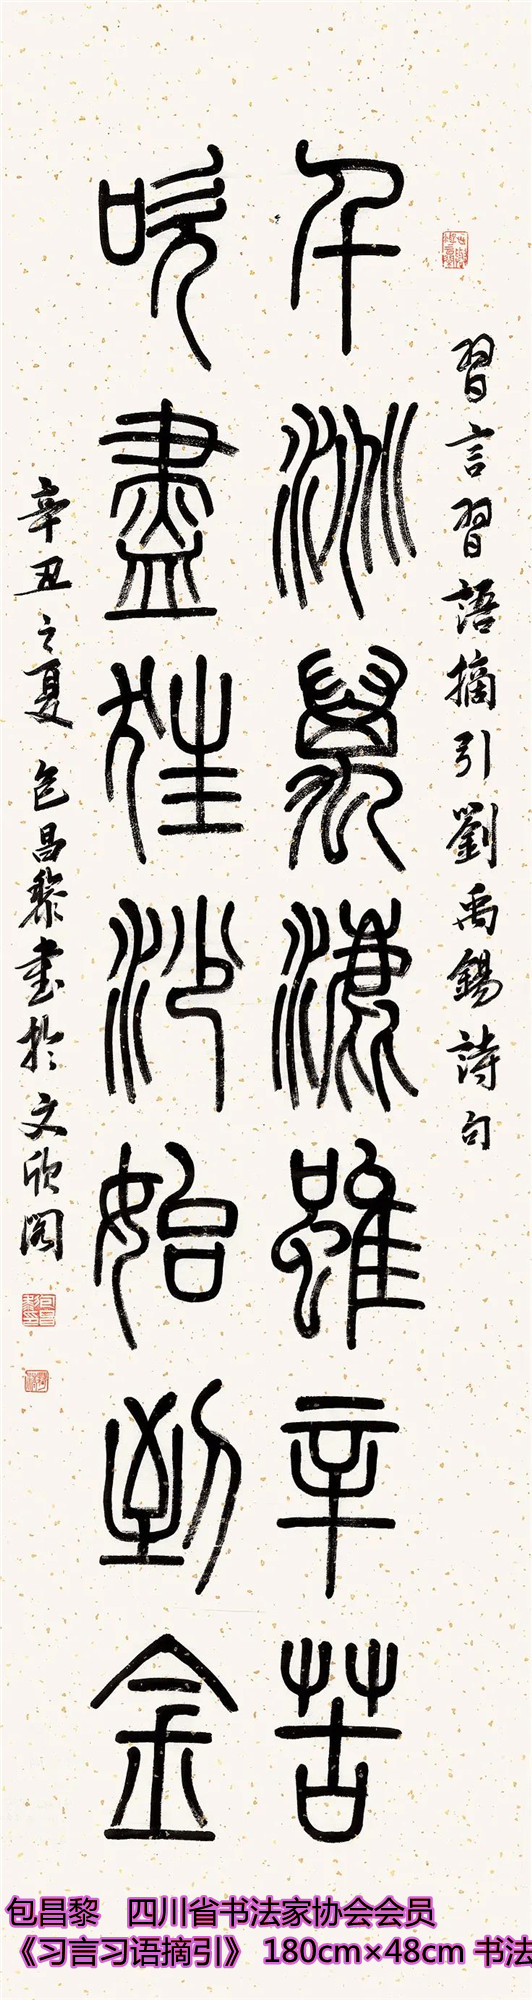 習言習語摘引劉禹錫詩句
千洮萬漉雖辛苦
吹盡狂沙始到金
辛丑之夏包昌黎書於文欣閣
包昌黎 四川省书法家协会会员
《习言习语摘引》 180cm×48cm 书法